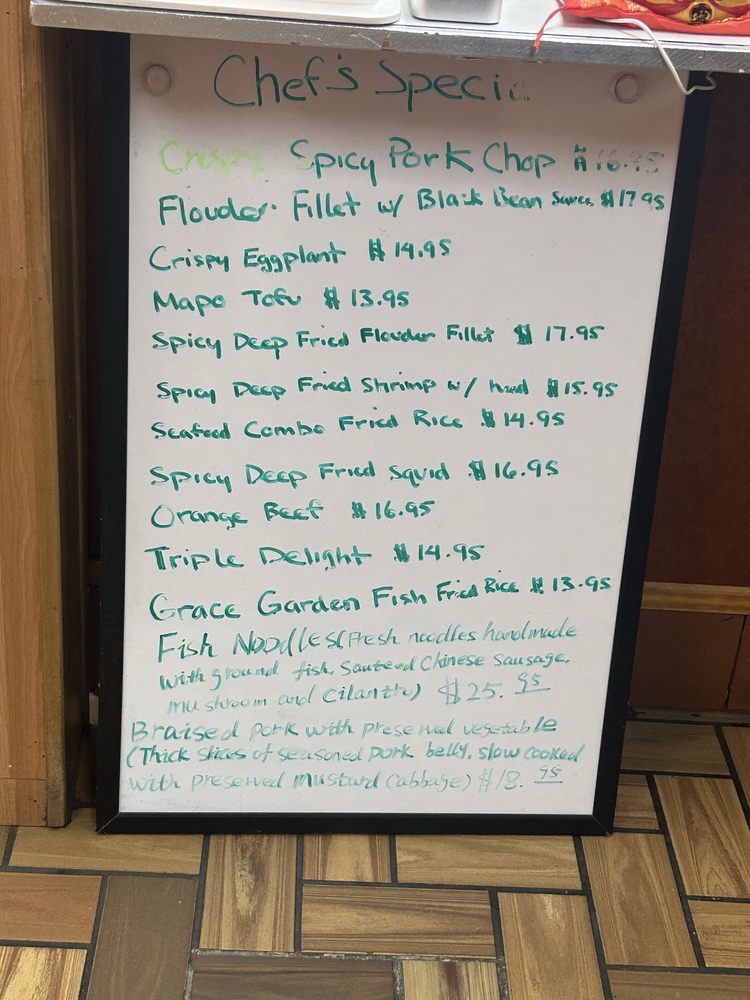 Chef's Specia
Crispy Spicy Pork Chop $16.95
Flouder Fillet w/ Black Bean Sauce $17.95
Crispy Eggplant $14.95
Mapo Tofu $13.95
Spicy Deep Fried Flouder Fillet $17.95
Spicy Deep Fried Shrimp w/ head $15.95
Seafood Combo Fried Rice $14.95
Spicy Deep Fried Squid $16.95
Orange Beef $16.95
Triple Delight $14.95
Grace Garden Fish Fried Rice $13.95
Fish Noodles(Fresh noodles handmade
with ground fish, Sauteed Chinese Sausage,
mushroom and Cilantro) $25.95
Braised pork with preserved vegetable
(Thick slices of seasoned pork belly, slow cooked
with preserved mustard cabbage) $18.95